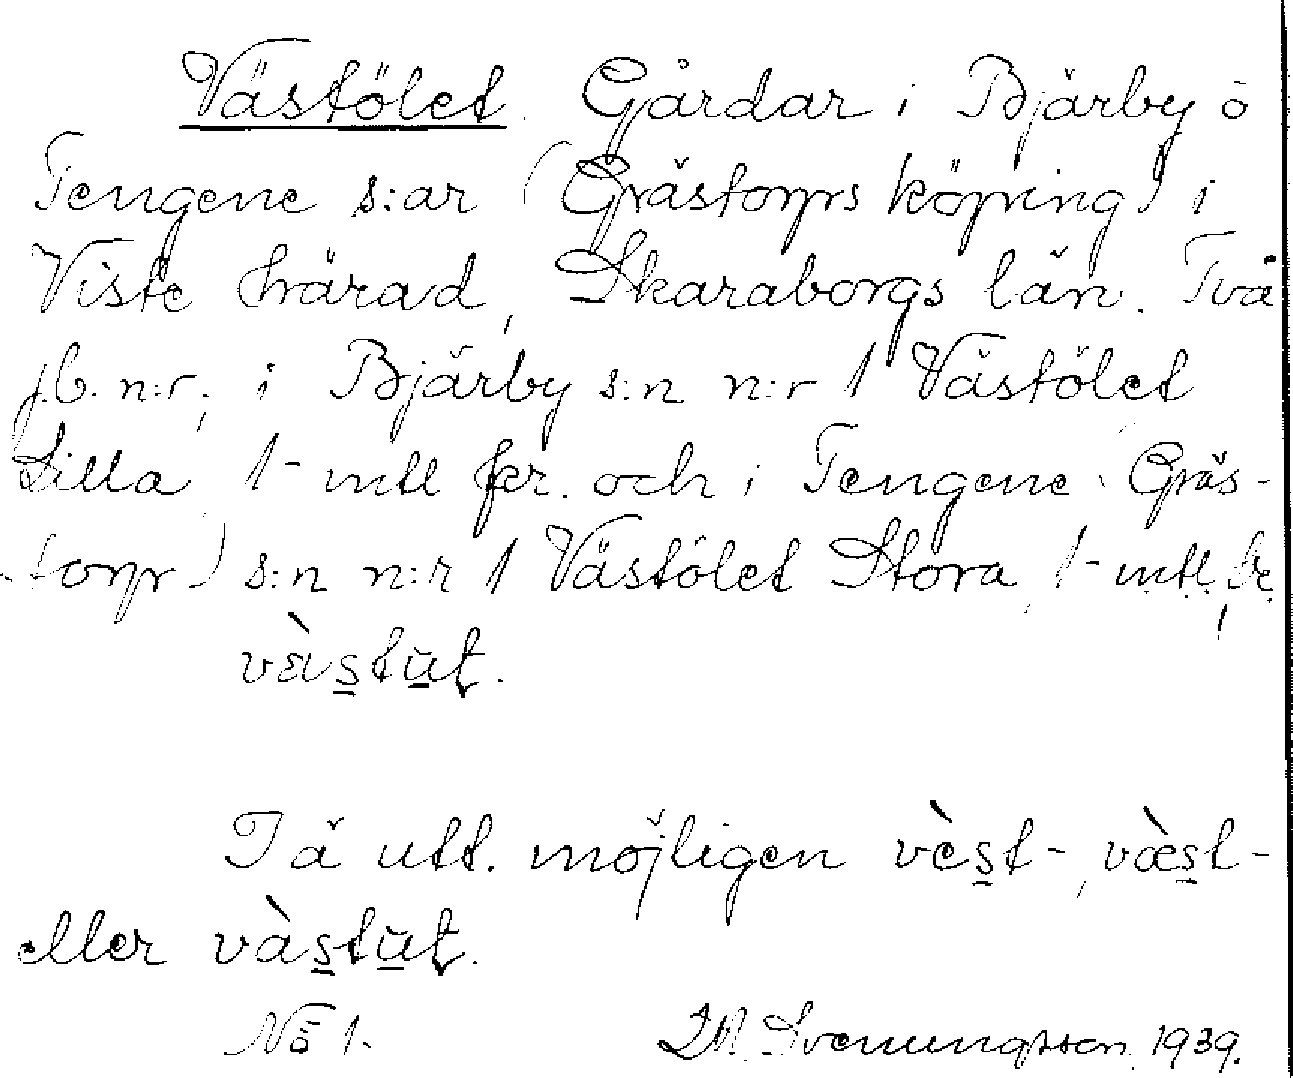 Västölet. Gårdar i Bjärby o
Tengene s:ar (Grästorps köping) i
Viste härad, Skaraborgs län. Två
jb. n:r; i Bjärby s:n n:r 1 Västölet
Lilla, 1 mtl fr. och i Tengene (Gräs-
torp) s:n n:r 1 Västölet Stora, 1 mtl
Iå utt. möjligen vèst-, væ̀st-
eller
No 1. Svenungsson 1939.